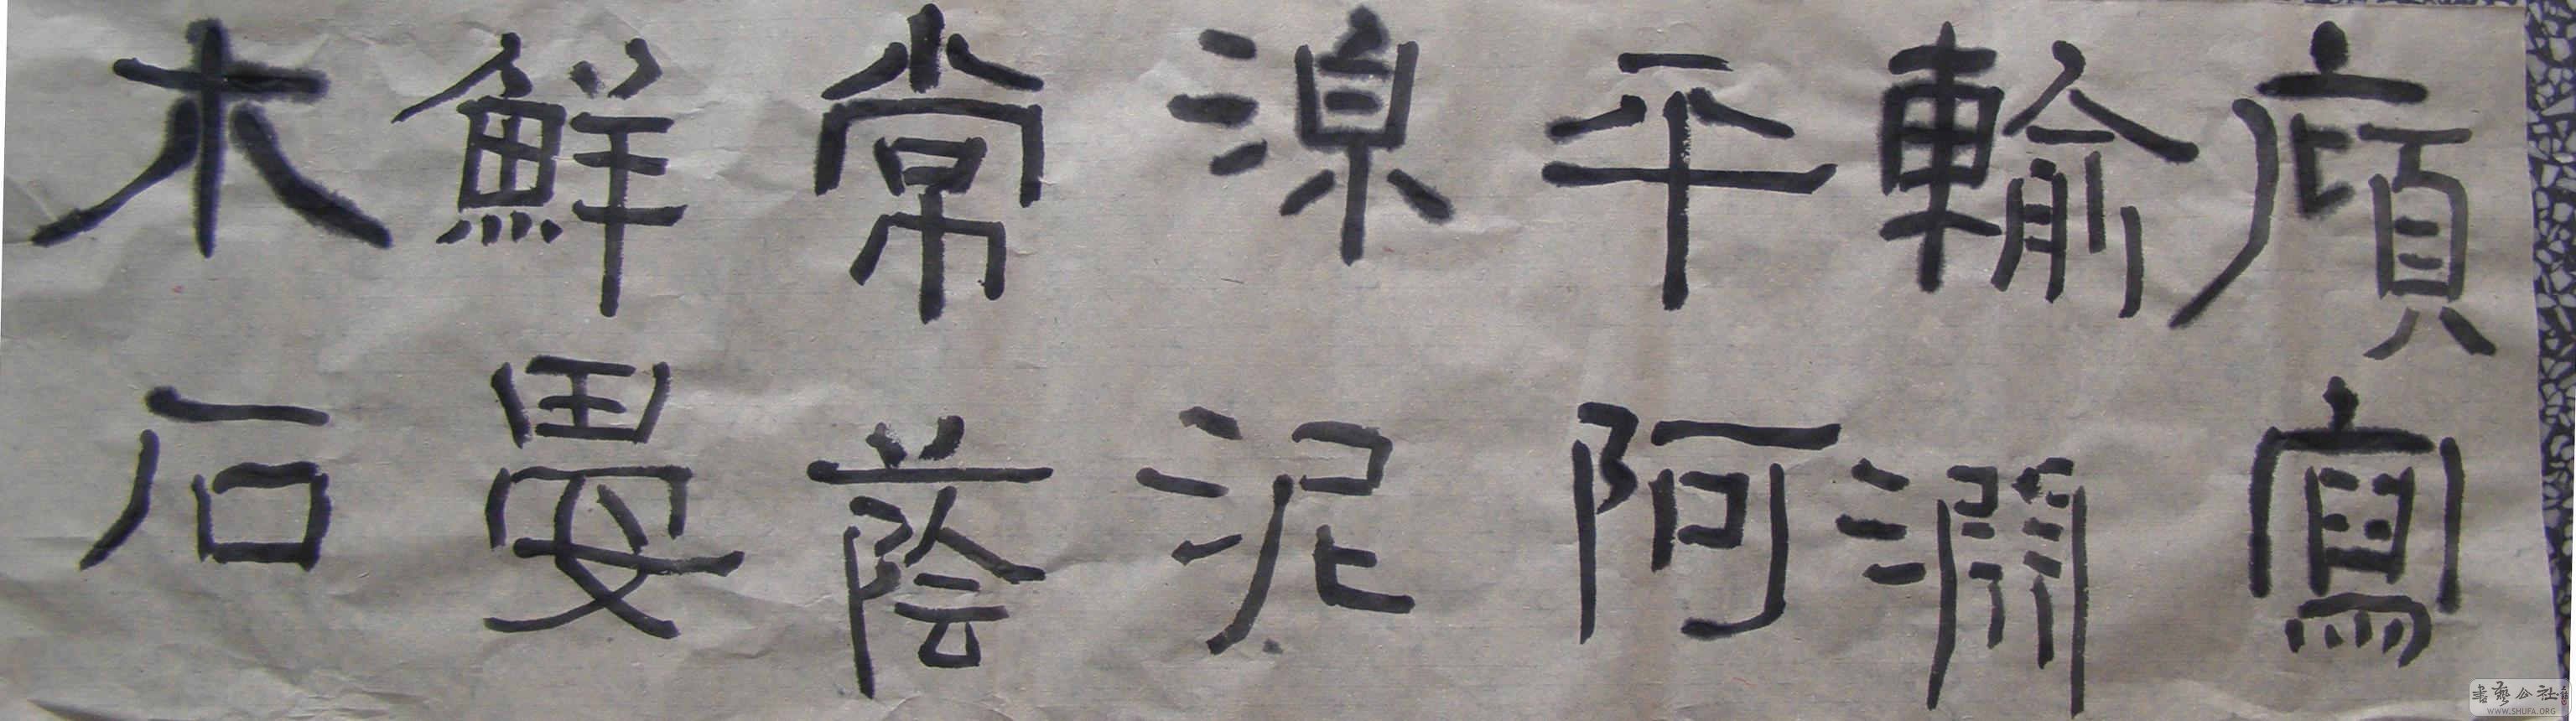 廎寫
輸
平阿
泥
常蔭
鮮
木石
書藝公社
WWW.SHUFA.ORG